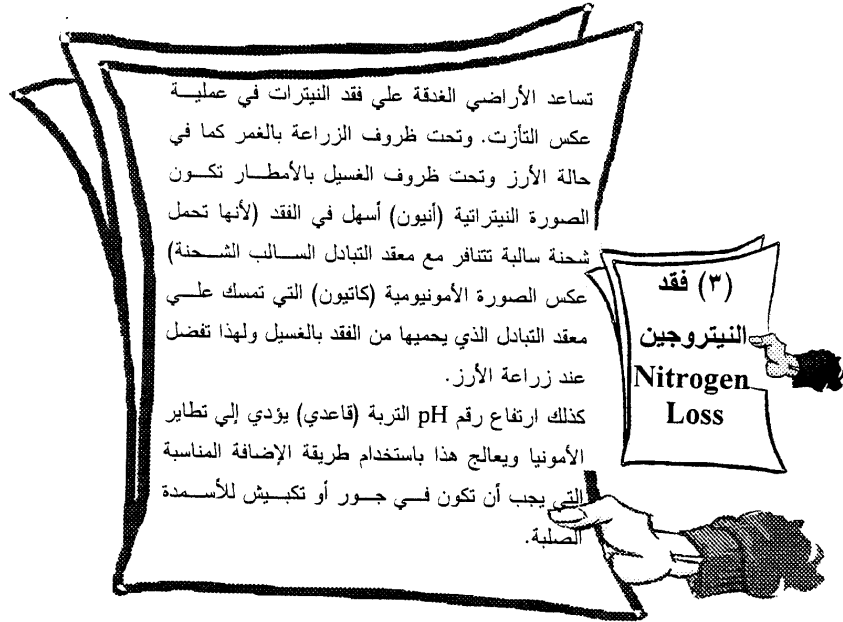 (٣) فقد
النيتروجين
Nitrogen
Loss
تساعد الأراضي الغدقة علي فقد النيترات في عملية
عكس التأزت. وتحت ظروف الزراعة بالغمر كما في
حالة الأرز وتحت ظروف الغسيل بالأمطار تكون
الصورة النيتراتية (أنيون) أسهل في الفقد (لأنها تحمل
شحنة سالبة تتنافر مع معقد التبادل السالب الشحنة)
عكس الصورة الأمونيومية (كاتيون) التي تمسك علي
معقد التبادل الذي يحميها من الفقد بالغسيل ولهذا تفضل
عند زراعة الأرز.
كذلك ارتفاع رقم pH التربة (قاعدي) يؤدي إلي تطاير
الأمونيا ويعالج هذا باستخدام طريقة الإضافة المناسبة
التي يجب أن تكون في جور أو تكبيش للأسمدة
الصلبة.